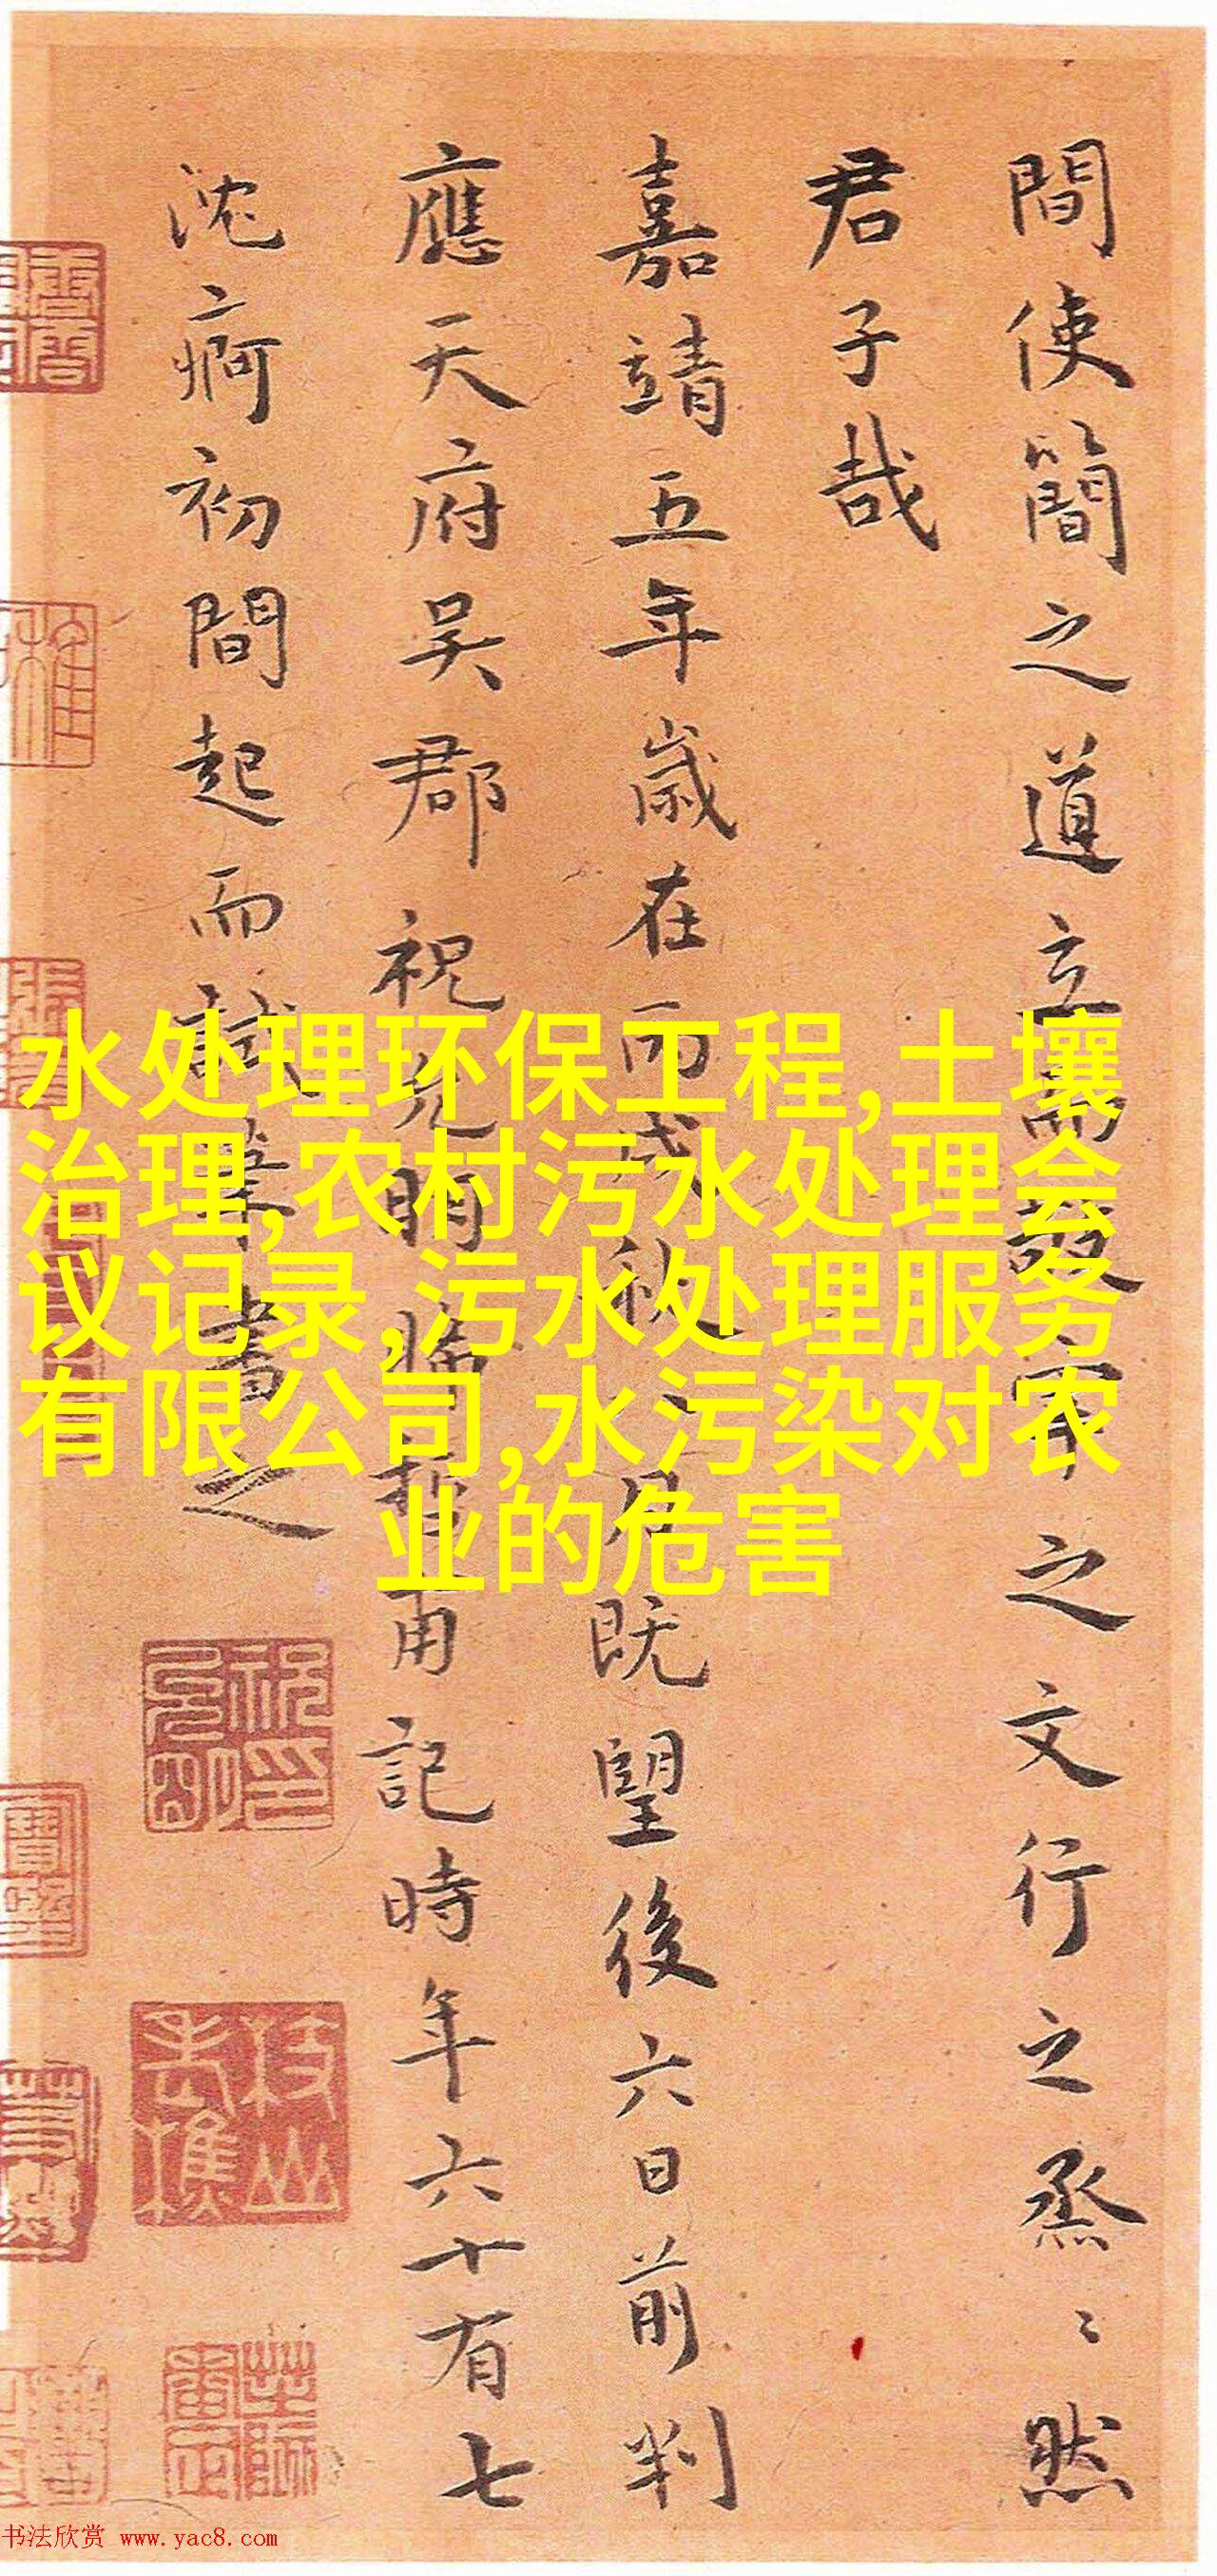 間使簡之道立而敬之文行之烝〻然
君子哉
嘉靖五年歲在丙戌秋七月既望後六日前判
應天府吳郡祝允明晞哲甫記時年六十有七
沈痾初間起而試筆書之
水处理环保工程,土壤
治理,农村污水处理会
议记录,污水处理服务
有限公司,水污染对农
业的危害
书法欣赏 www.yac8.com